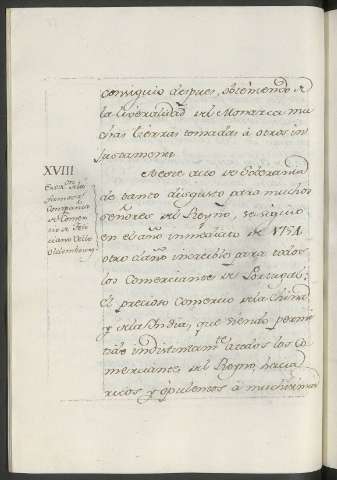 consiguio despues, obteniendo de
la liveralidad del Monarca mu
chas tierras tomadas à otros in
justamente.
XVIII
Compania
de Comer
cio de
ciano Velho
Oldemberg
A este acto de Soberania
de tanto disgusto para muchos
Señores del Reyno, se siguio
en el año inmediato de 1754.
otro daño increible para todos
los Comerciantes de Portugal:
el precioso Comercio de la China
y de la India, que siendo permi
tido indistintam.te a todos los Co
merciantes del Reyno, hacia
ricos y opulentos à muchissimos